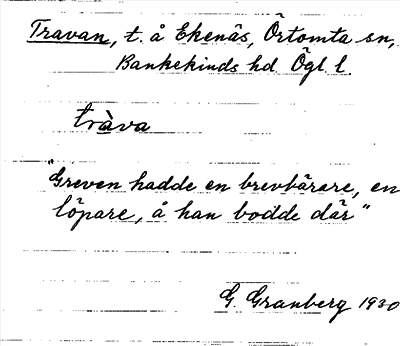 Travan, t. å Ekenäs, Örtomta sn,
Bankekinds hd Ögl l.
tràva
"Greven hadde en brevbärare, en
löpare, å han bodde där"
G. Granberg 1930